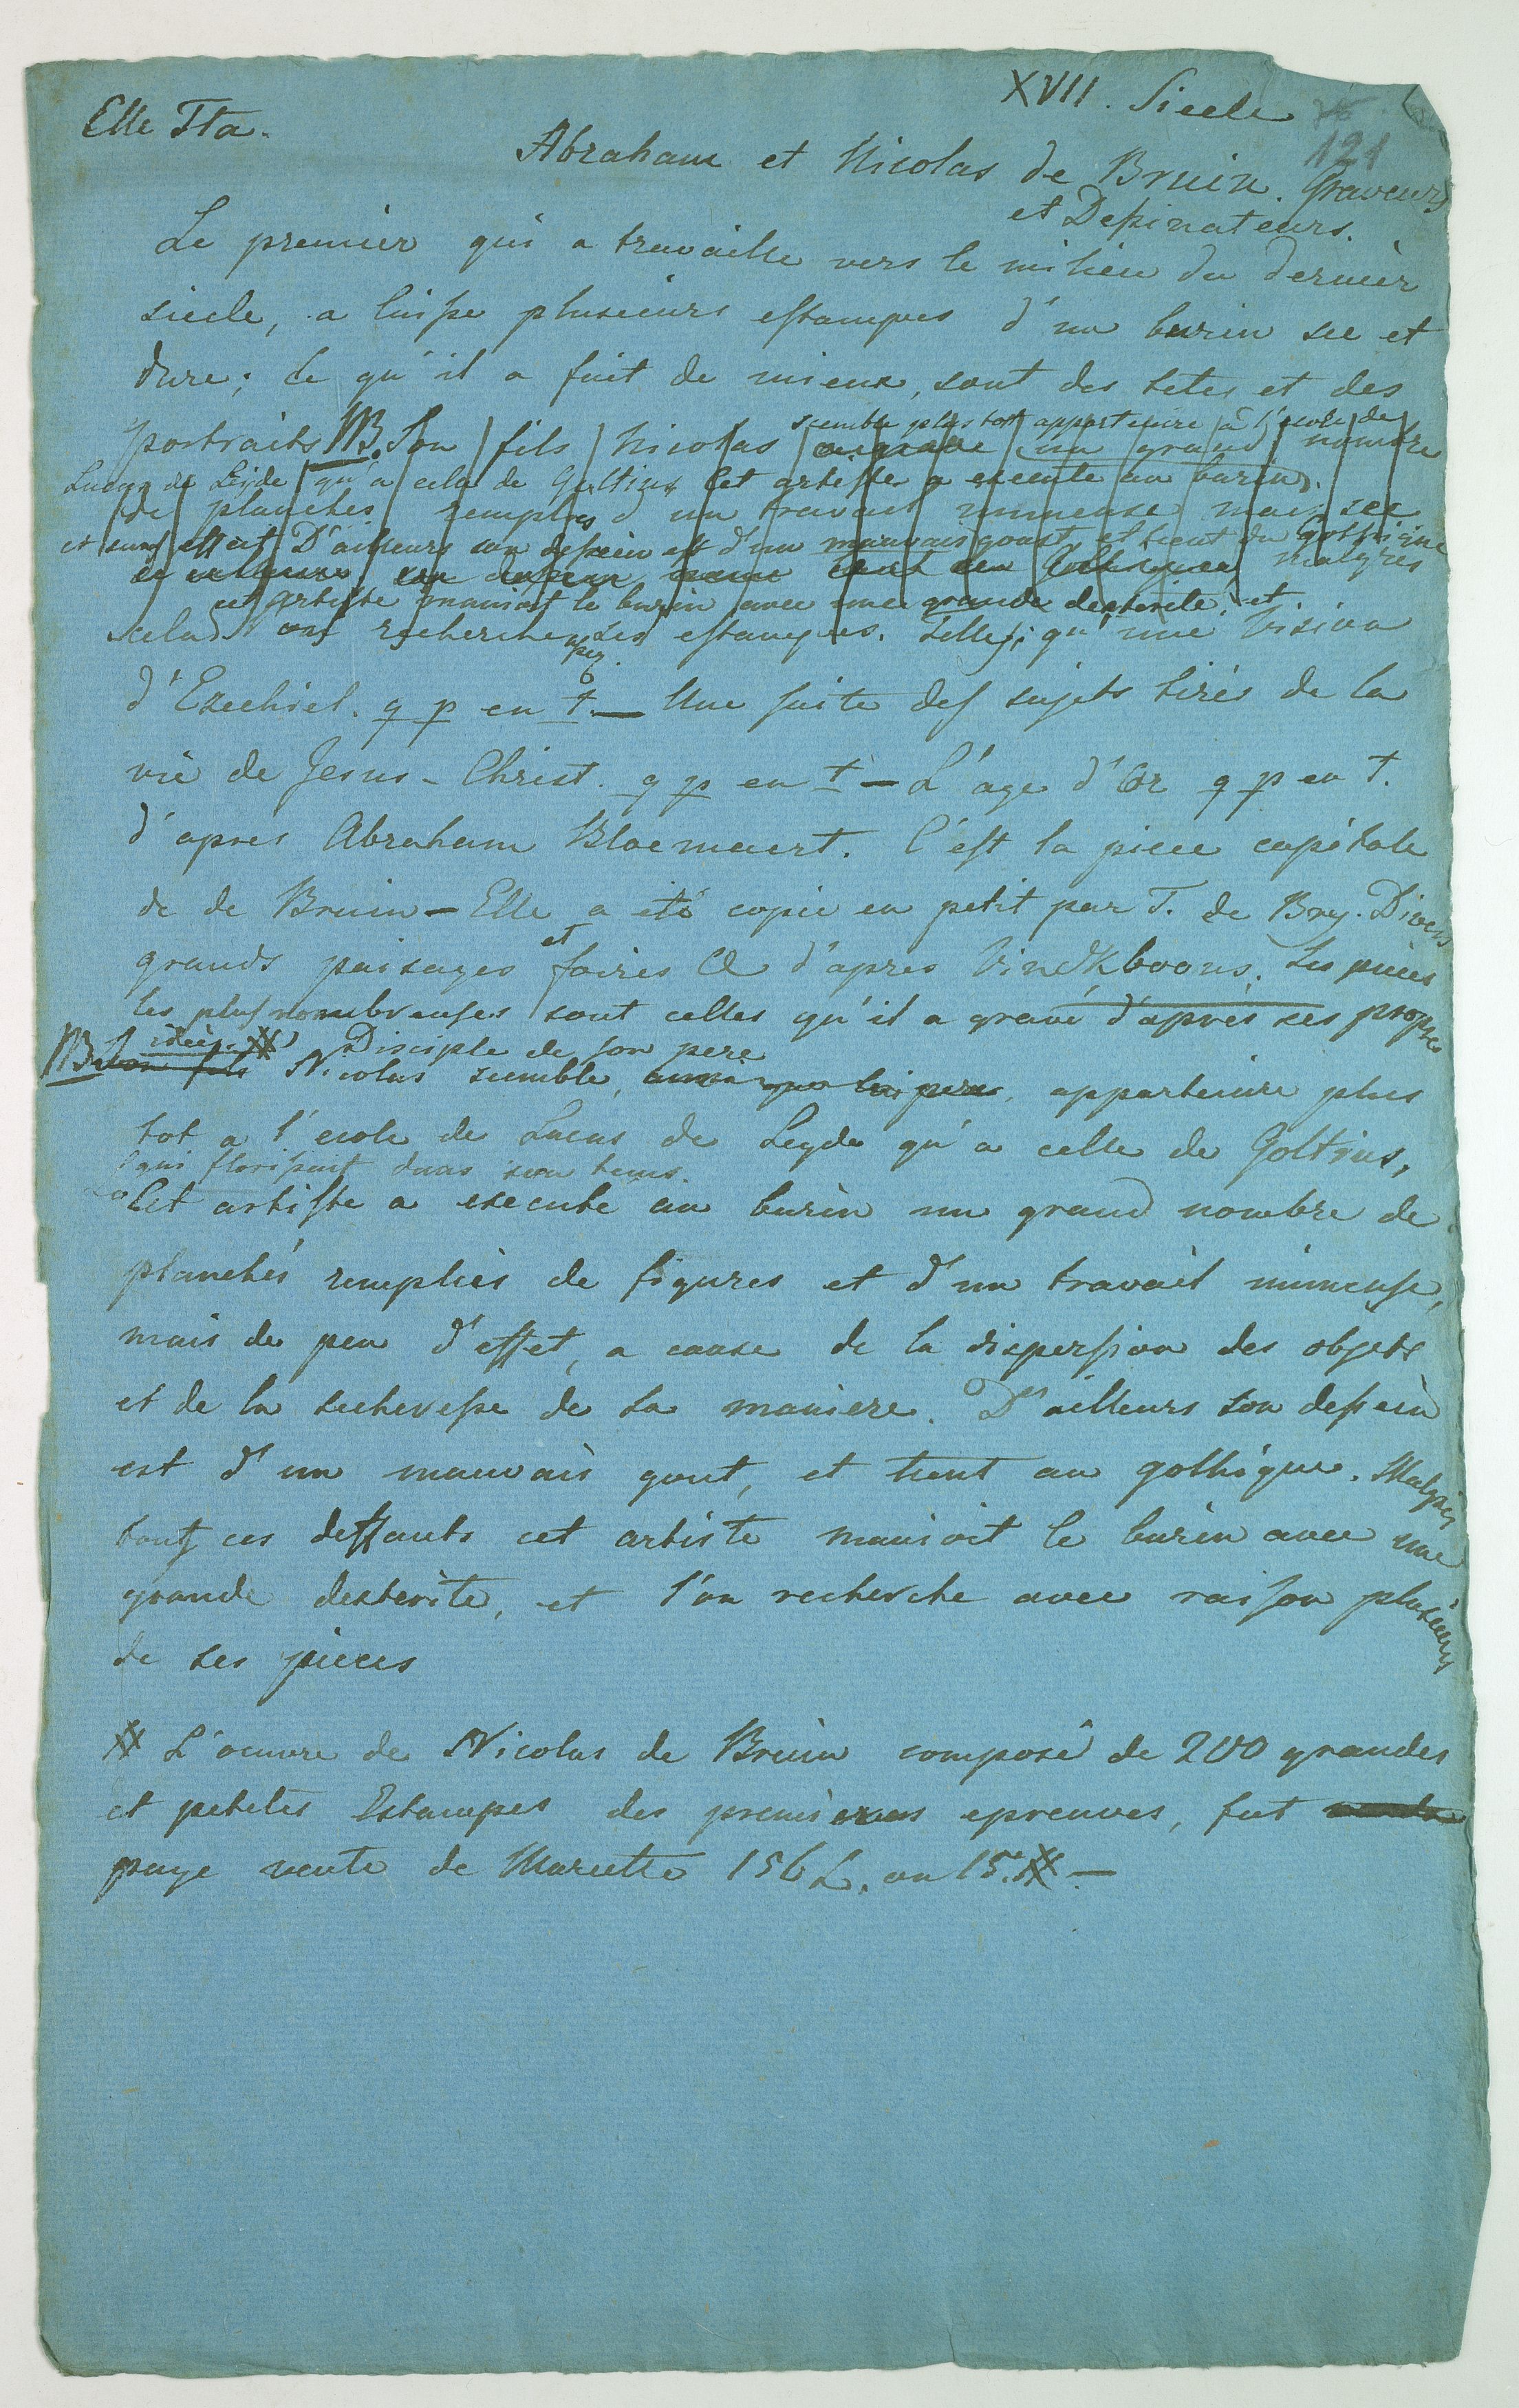 XVII. Siecle
Elle Tta.
121
Abraham et Nicolas de Bruin. Graveurs
et Deßinateurs.
Le premier qui a travaille vers le milieu du dernier
siecle, a laisse plusieurs estampes d'un burin sec et
dure; Ce qu'il a fait de mieux, sont des tetes et des
semble plus tot appartenire à l'ecole de
portraits NB. Son fils Nicolas a grave un grand nombre
Lucas de Leÿde qu'a cela de Goltius Cet artiste a execute au burin
de planches remplies d'un travail immense mais sec
et sans effait D'ailleurs son dessein est d'un mauvais goust, et tient du Gothique
malgres
cet Artiste manioit le burin avec une grande dexterite, et
cela on recherche ses estampes. telles qu'une Vision
d'Ezechiel. g p en t. — Une suite des sujets tirés de la
vie de Jesus-Christ. g p en t — L'age d'Or g p en t.
d'apres Abraham Bloemaert. C'est la piece capitale
de de Bruin — Elle a eté copie en petit par T. de Bry. Divers
grands paisages et foires &c d'apres Vinckboons. Les pieces
les plus nombreuses sont celles qu'il a gravé d'apres ses propres
idées. # Disciple de son pere
NB Son fils Nicolas semble, appartenire plus
tot a l'ecole de Lucas de Leyde qu'a celle de Goltius,
qui florissait dans son tems.
Cet artiste a execute au burin un grand nombre de
planches remplies de figures et d'un travail immense,
mais de peu d'effet, a cause de la dispersion des objets
et de la secheresse de sa maniere. D'ailleurs son dessein
est d'un mauvais gout, et tient au gothique. Malgres
tous ces deffauts cet artiste manioit le burin avec une
grande dexterite, et l'on recherche avec raison plusieurs
de ses pieces
# L'oeuvre de Nicolas de Bruin composé de 200 grandes
et petites Estampes des premieres epreuves, fut
paye vente de Mariette 156 L. au 15. # —